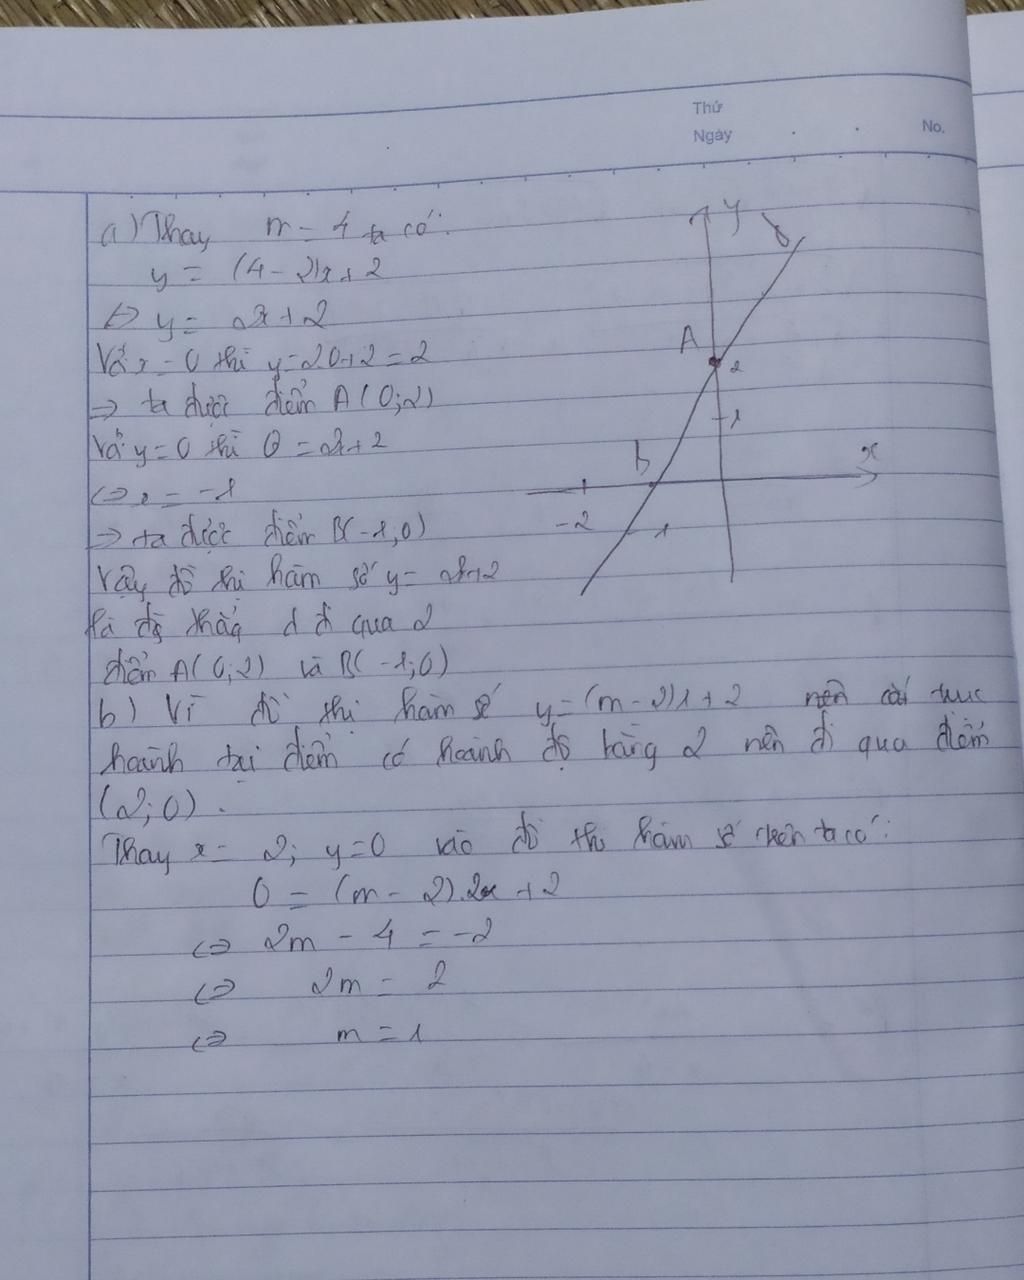 Thứ
Ngày
No.
a) Thay m = 4 ta có:
y = (4 - 2)x + 2
<=> y = 2x + 2
Với x = 0 thì y = 2.0 + 2 = 2
=> ta được điểm A(0;2)
Với y = 0 thì 0 = 2x + 2
<=> x = -1
=> ta được điểm B(-1;0)
Vậy đồ thị hàm số y = 2x+2
là đg thẳg d đi qua 2
điểm A(0;2) và B(-1;0)
y
d
A
2
1
b
x
-2
-1
b) Vì đồ thị hàm số y = (m - 2)x + 2 nên cắt trục
hoành tại điểm có hoành độ bằng 2 nên đi qua điểm
(2; 0).
Thay x = 2; y = 0 vào đồ thị hàm số trên ta có:
0 = (m - 2).2 + 2
<=> 2m - 4 = -2
<=> 2m = 2
<=> m = 1